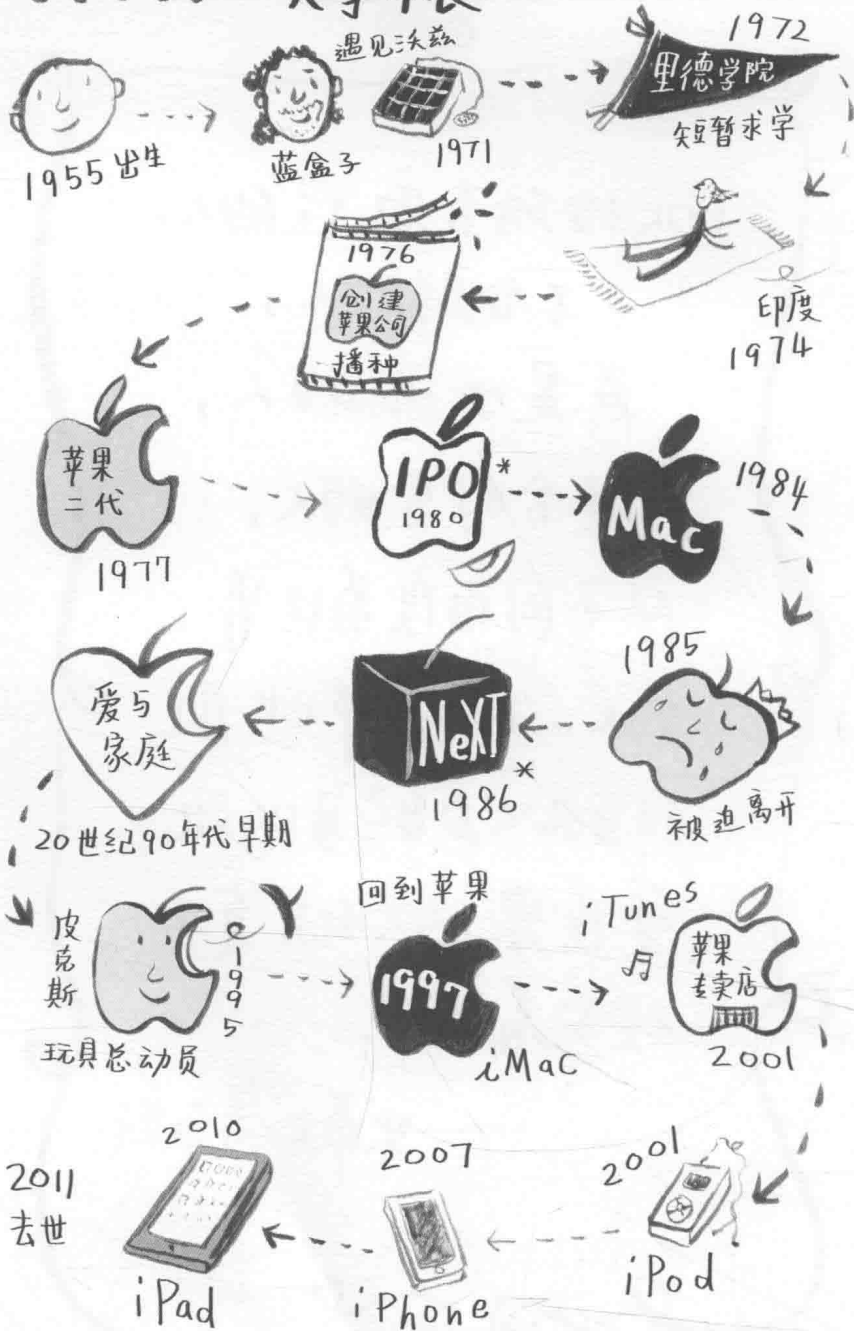 大事年表
1955 出生
遇见沃兹
蓝盒子
1971
1972
里德学院
短暂求学
印度
1974
1976
创建
苹果公司
播种
苹果
二代
1977
IPO*
1980
Mac
1984
1985
被迫离开
NeXT*
1986
爱与
家庭
20世纪90年代早期
皮克斯
1995
玩具总动员
回到苹果
1997
iMac
iTunes
苹果
专卖店
2001
2001
iPod
2007
iPhone
2010
iPad
2011
去世